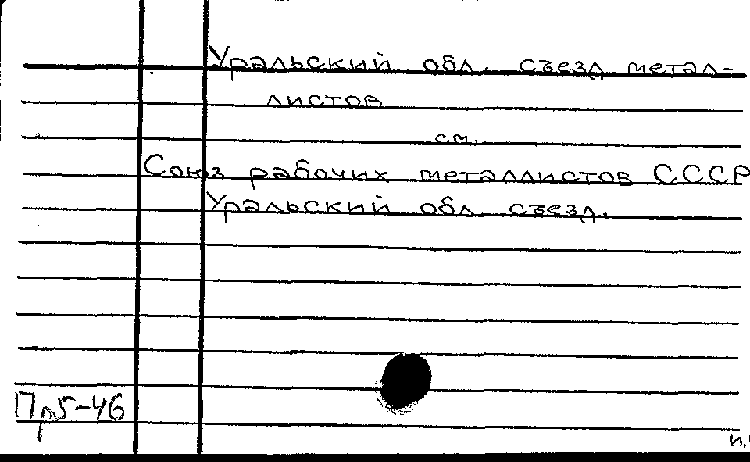 Уральский обл. съезд метал-
листов
см.
Союз рабочих металлистов СССР
Уральский обл. съезд.
Пр5-46